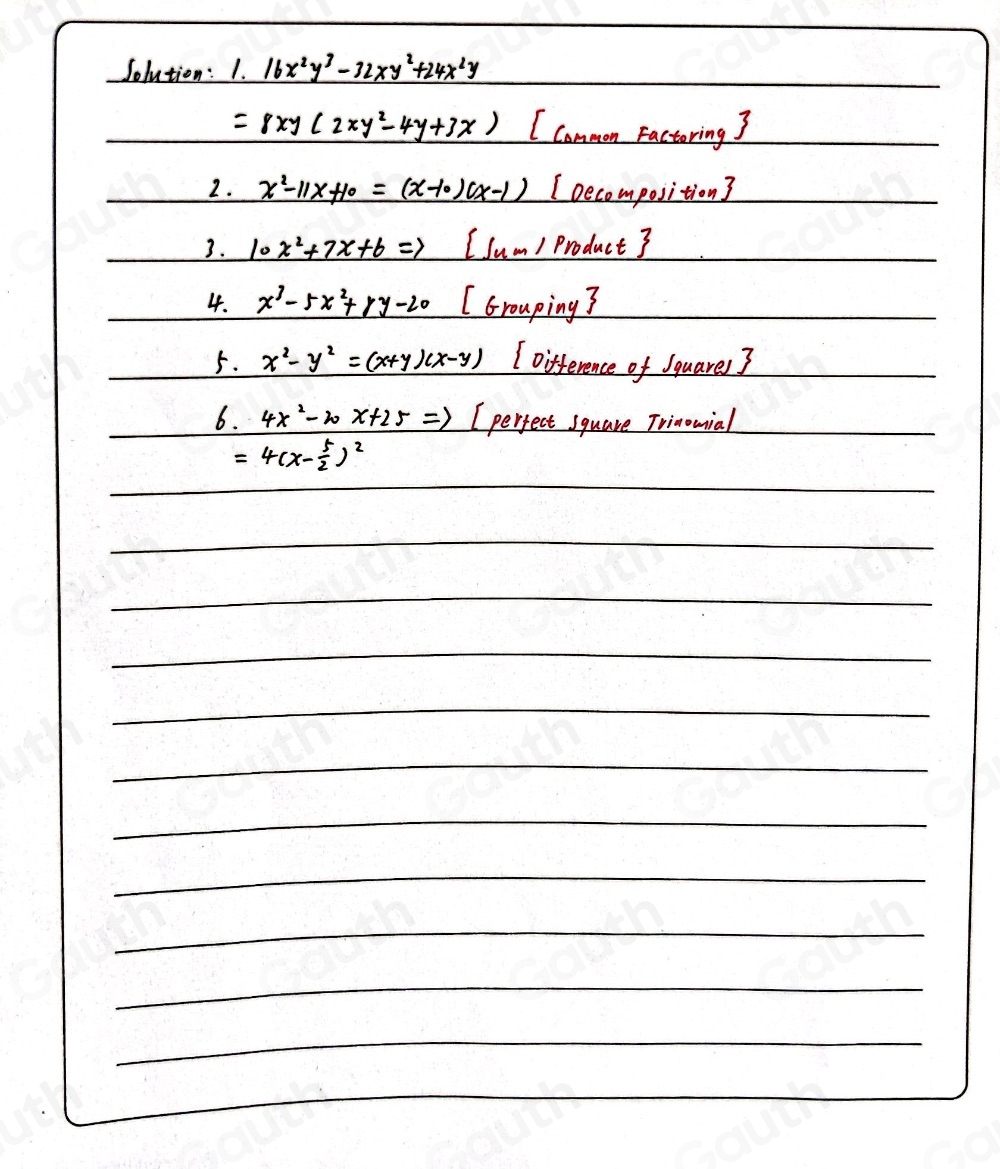 Solution: 1. 16x²y³-32xy²+24x²y
= 8xy(2xy²-4y+3x) [Common Factoring}
2. x²-11x+10 = (x-10)(x-1) [Decomposition}
3. 10x²+7x+6 => [Sum/Product}
4. x³-5x²+8y-20 [Grouping}
5. x²-y² =(x+y)(x-y) [Difference of Squares}
6. 4x²-20x+25 => [perfect square Trinomial
= 4(x-5/2)²